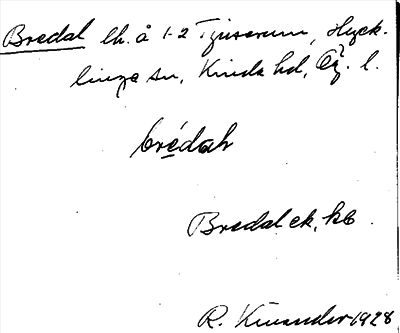 Bredal lh. å 1-2 Tjuserum, Hyck-
linge sn, Kinda hd, Ög. l.
bredal
Bredal ek, kb.
R. Kinander 1928